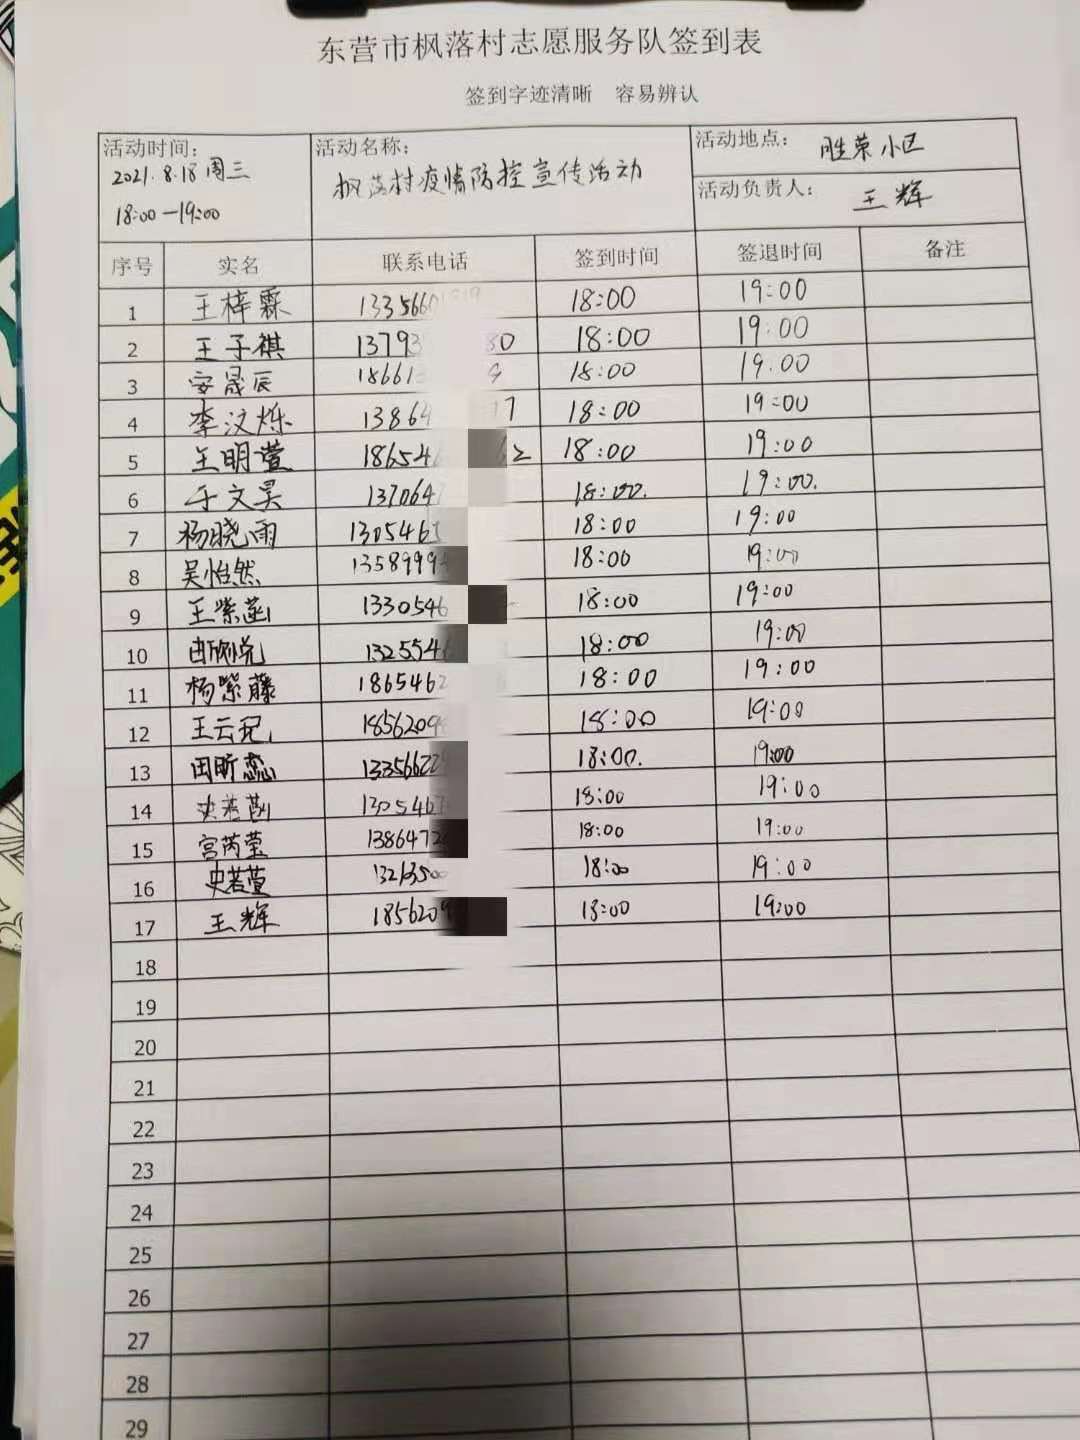 东营市枫落村志愿服务队签到表
签到字迹清晰 容易辨认
活动时间: 2021.8.18 周三 18:00—19:00
活动名称: 枫落村疫情防控宣传活动
活动地点: 胜荣小区
活动负责人: 王辉
序号 实名 联系电话 签到时间 签退时间 备注
1 王梓霖 1335660 18:00 19:00
2 王子祺 13793 80 18:00 19:00
3 安晟辰 18661 9 18:00 19.00
4 李汶烁 13864 17 18:00 19:00
5 王明萱 186546 2 18:00 19:00
6 于文昊 137064 18:00. 19:00.
7 杨晓雨 1305465 18:00 19:00
8 吴怡然 13589994 18:00 19:00
9 王紫菡 1330546 18:00 19:00
10 曲欣悦 1325546 18:00 19:00
11 杨紫藤 1865462 18:00 19:00
12 王云 1856209 18:00 19:00
13 田昕蕊 13356622 18:00. 19:00
14 1305467 18:00 19:00
15 宫芮莹 1386472 18:00 19:00
16 史若萱 18:00 19:00
17 王辉 1856209 18:00 19:00
18
19
20
21
22
23
24
25
26
27
28
29